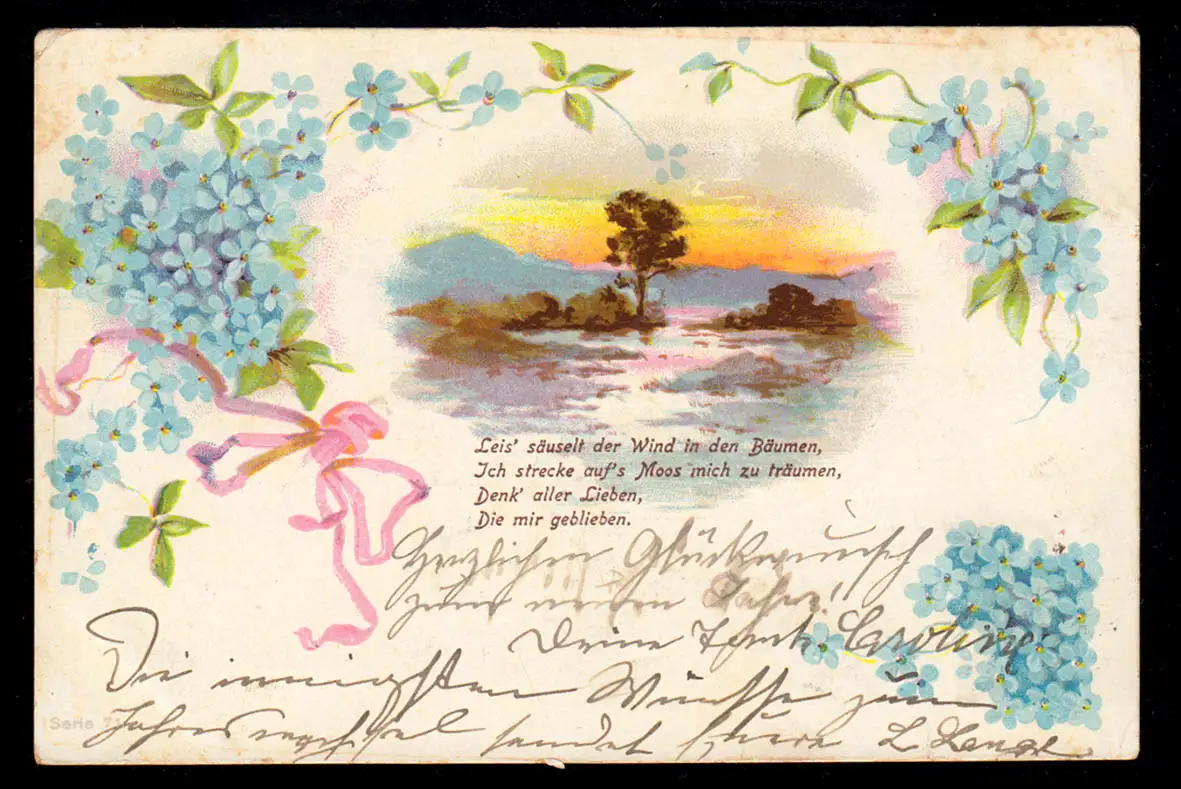 Leis' säuselt der Wind in den Bäumen,
Ich strecke auf's Moos mich zu träumen,
Denk' aller Lieben,
Die mir geblieben.
Herzlichen Glückwunsch
zum neuen Jahre!
Deine Tante Caroline
Die innigsten Wünsche zum
Serie
Jahreswechsel sendet Euere L. Lange